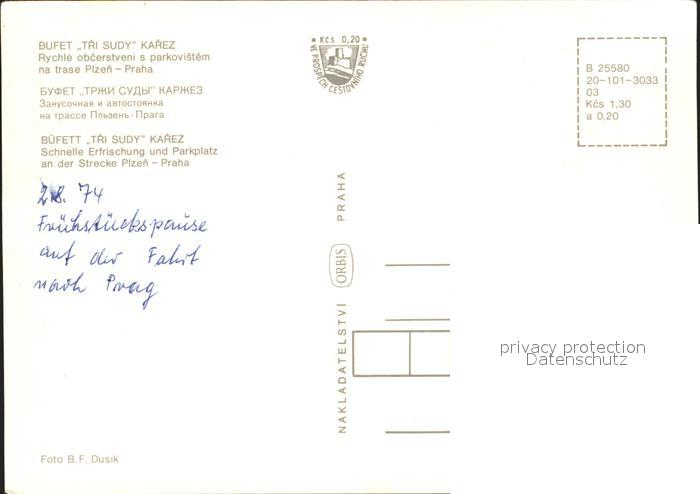 BUFET „TŘI SUDY" KAŘEZ
Rychlé občerstvení s parkovištěm
na trase Plzeň – Praha
БУФЕТ „ТРЖИ СУДЫ" КАРЖЕЗ
Закусочная и автостоянка
на трассе Пльзень - Прага
BÜFETT „TŘI SUDY" KAŘEZ
Schnelle Erfrischung und Parkplatz
an der Strecke Plzeň – Praha
2.8. 74
Frühstückspause
auf der Fahrt
nach Prag
Foto B. F. Dusík
Kčs 0,20
VE PROSPĚCH CESTOVNÍHO RUCHU
NAKLADATELSTVÍ ORBIS PRAHA
B 25580
20-101-3033
03
Kčs 1,30
a 0,20
privacy protection
Datenschutz